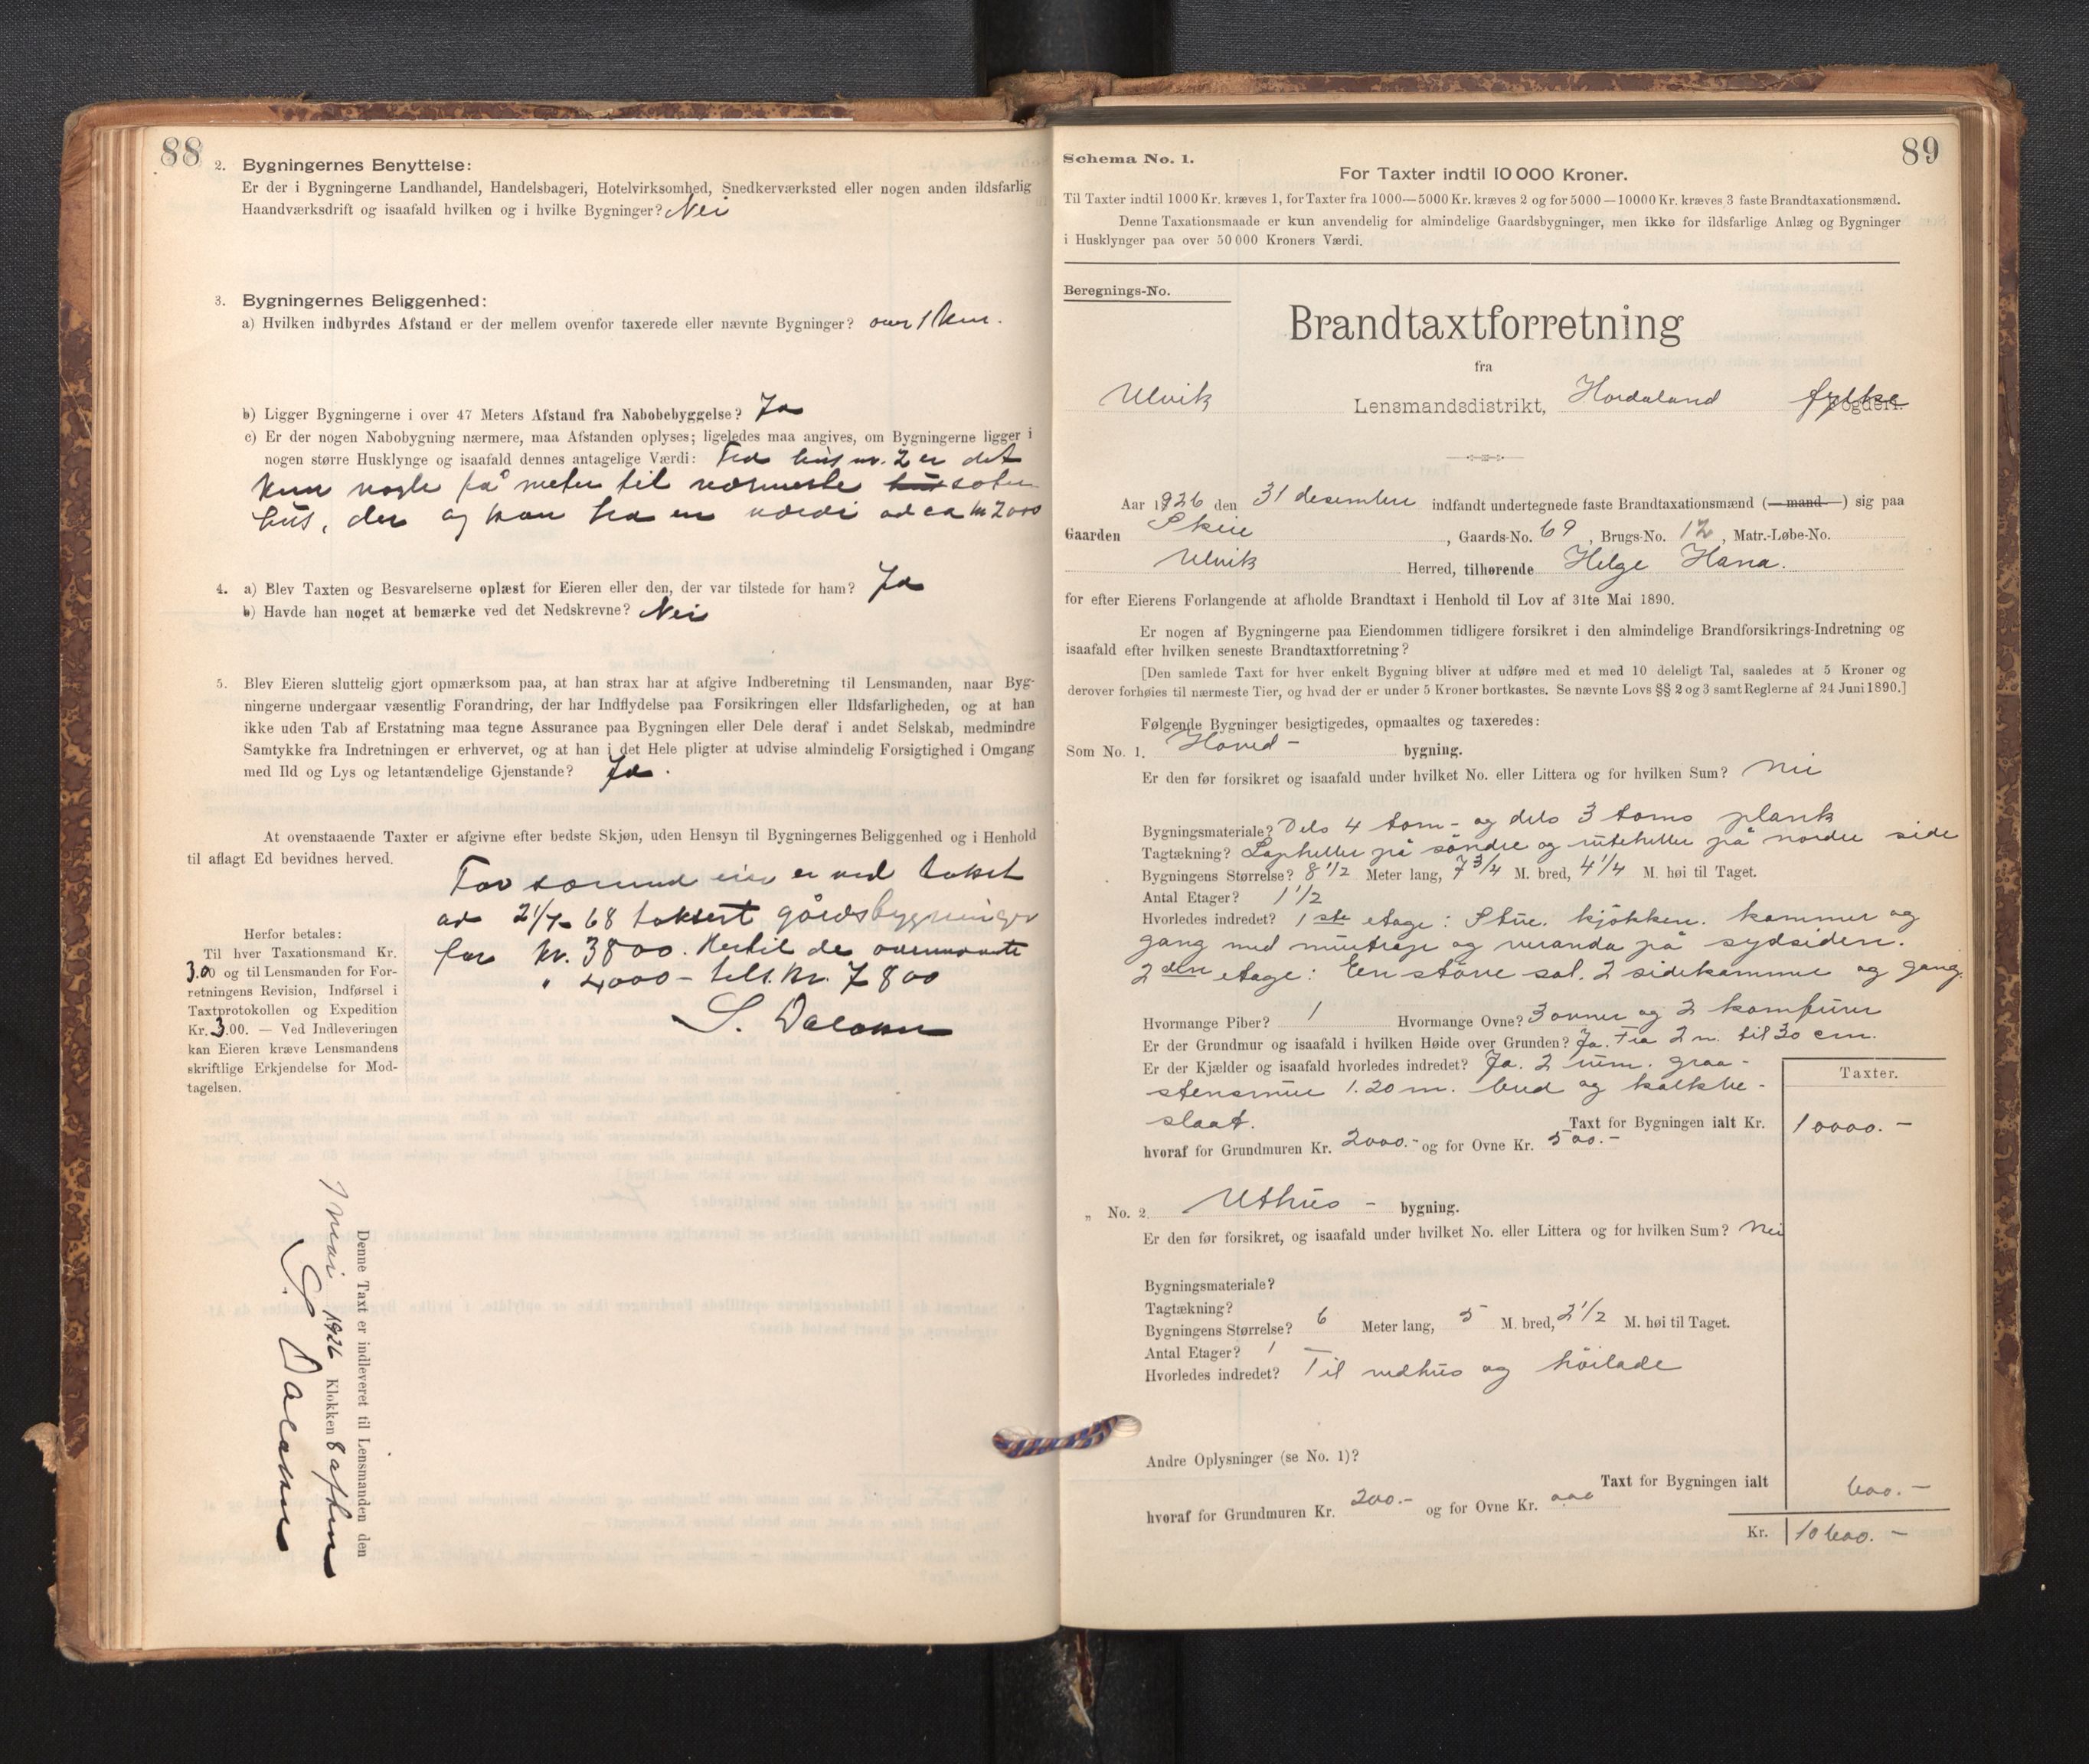 88
2. Bygningernes Benyttelse:
Er der i Bygningerne Landhandel, Handelsbageri, Hotelvirksomhed, Snedkerværksted eller nogen anden ildsfarlig
Haandværksdrift og isaafald hvilken og i hvilke Bygninger? Nei
3. Bygningernes Beliggenhed:
a) Hvilken indbyrdes Afstand er der mellem ovenfor taxerede eller nævnte Bygninger? over 1 km.
b) Ligger Bygningerne i over 47 Meters Afstand fra Nabobebyggelse? Ja
c) Er der nogen Nabobygning nærmere, maa Afstanden oplyses; ligeledes maa angives, om Bygningerne ligger i
nogen større Husklynge og isaafald dennes antagelige Værdi: Fra hus nr. 2 er det
kun nogle få meter til nærmeste
hus, der og kan ha en værdi av ca kr 2000
4. a) Blev Taxten og Besvarelserne oplæst for Eieren eller den, der var tilstede for ham? Ja
b) Havde han noget at bemærke ved det Nedskrevne? Nei
5. Blev Eieren sluttelig gjort opmærksom paa, at han strax har at afgive Indberetning til Lensmanden, naar Byg-
ningerne undergaar væsentlig Forandring, der har Indflydelse paa Forsikringen eller Ildsfarligheden, og at han
ikke uden Tab af Erstatning maa tegne Assurance paa Bygningen eller Dele deraf i andet Selskab, medmindre
Samtykke fra Indretningen er erhvervet, og at han i det Hele pligter at udvise almindelig Forsigtighed i Omgang
med Ild og Lys og letantændelige Gjenstande? Ja.
At ovenstaaende Taxter er afgivne efter bedste Skjøn, uden Hensyn til Bygningernes Beliggenhed og i Henhold
til aflagt Ed bevidnes herved.
For samme eier er ved takst
av 21/7-68 taksert gårdsbygninger
for kr. 3800. Hertil de ovennevnte
" 4000 - tils. kr. 7800
S. Dalown
Herfor betales:
Til hver Taxationsmand Kr.
3.00 og til Lensmanden for For-
retningens Revision, Indførsel i
Taxtprotokollen og Expedition
Kr. 3.00. — Ved Indleveringen
kan Eieren kræve Lensmandens
skriftlige Erkjendelse for Mod-
tagelsen.
Denne Taxt er indleveret til Lensmanden den
1 mai 1926 Klokken 8 aften
89
Schema No. 1.
For Taxter indtil 10 000 Kroner.
Til Taxter indtil 1000 Kr. kræves 1, for Taxter fra 1000—5000 Kr. kræves 2 og for 5000—10000 Kr. kræves 3 faste Brandtaxationsmænd.
Denne Taxationsmaade er kun anvendelig for almindelige Gaardsbygninger, men ikke for ildsfarlige Anlæg og Bygninger
i Husklynger paa over 50 000 Kroners Værdi.
Beregnings-No.
Brandtaxtforretning
fra
Ulvik Lensmandsdistrikt, Hordaland fylke Fogderi.
Aar 1926 den 31 desember indfandt undertegnede faste Brandtaxationsmænd (—mand—) sig paa
Gaarden Skeie, Gaards-No. 69, Brugs-No. 12, Matr.-Løbe-No.
Ulvik Herred, tilhørende Helge Hana.
for efter Eierens Forlangende at afholde Brandtaxt i Henhold til Lov af 31te Mai 1890.
Er nogen af Bygningerne paa Eiendommen tidligere forsikret i den almindelige Brandforsikrings-Indretning og
isaafald efter hvilken seneste Brandtaxtforretning?
[Den samlede Taxt for hver enkelt Bygning bliver at udføre med et med 10 deleligt Tal, saaledes at 5 Kroner og
derover forhøies til nærmeste Tier, og hvad der er under 5 Kroner bortkastes. Se nævnte Lovs §§ 2 og 3 samt Reglerne af 24 Juni 1890.]
Følgende Bygninger besigtigedes, opmaaltes og taxeredes:
Som No. 1. Hoved- bygning.
Er den før forsikret og isaafald under hvilket No. eller Littera og for hvilken Sum? Nei
Bygningsmateriale? Dels 4 tom- og dels 3 toms plank
Tagtækning? Lapheller på søndre og rutcheller på nordre side
Bygningens Størrelse? 8 1/2 Meter lang, 7 3/4 M. bred, 4 1/4 M. høi til Taget.
Antal Etager? 1 1/2
Hvorledes indredet? 1ste etage: Stue. kjøkken. kammer og
gang med murtrapp og veranda på sydsiden.
2den etage: En større sal. 2 sidekammer og gang.
Hvormange Piber? 1 Hvormange Ovne? 3 ovner og 2 komfurer
Er der Grundmur og isaafald i hvilken Høide over Grunden? Ja. Fra 2 m. til 30 cm.
Er der Kjælder og isaafald hvorledes indredet? Ja. 2 rum. graa-
stensmur 1.20 m. bred og kalkbe-
slaat.
Taxter.
Taxt for Bygningen ialt Kr. 10000.-
hvoraf for Grundmuren Kr. 2000.- og for Ovne Kr. 500.-
„ No. 2 Uthus- bygning.
Er den før forsikret, og isaafald under hvilket No. eller Littera og for hvilken Sum? Nei
Bygningsmateriale?
Tagtækning?
Bygningens Størrelse? 6 Meter lang, 5 M. bred, 2 1/2 M. høi til Taget.
Antal Etager? 1
Hvorledes indredet? Til vedhus og høilade
Andre Oplysninger (se No. 1)?
Taxt for Bygningen ialt 600.-
hvoraf for Grundmuren Kr. 200.- og for Ovne Kr. 000
Kr. 10600.-